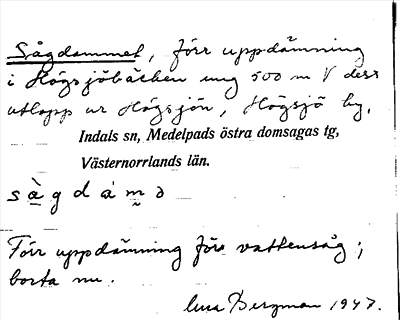 Sågdammet, förr uppdämning
i Högsjöbäcken ung 500 m V dess
utlopp ur Högsjön, Högsjö by.
Indals sn, Medelpads östra domsagas tg,
Västernorrlands län.
s à̲ g d á m̰ ə
Förr uppdämning före vattensåg;
borta nu.
Bergman 1947.